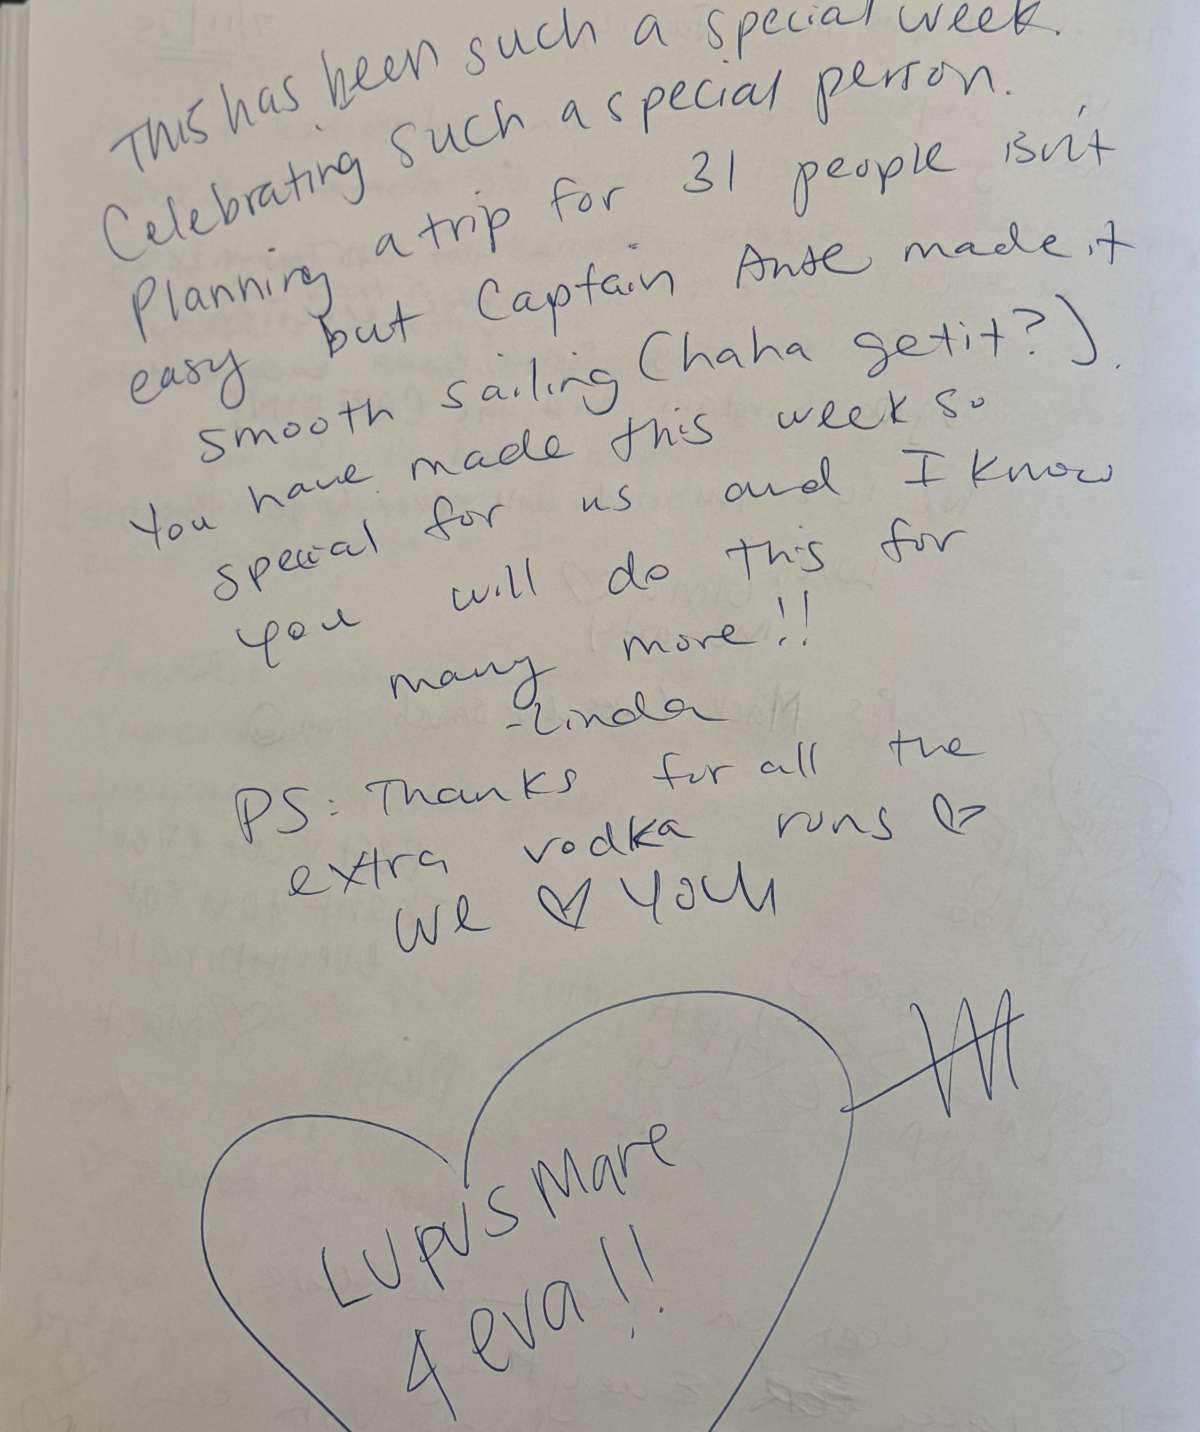 This has been such a special week.
Celebrating such a special person.
Planning a trip for 31 people isn't
easy but Captain Ante made it
smooth sailing (haha get it?).
You have made this week so
special for us and I know
you will do this for
many more!!
-Linda
PS: Thanks for all the
extra vodka runs ♡
We ♡ You
LUPUS Mare
4 eva!!